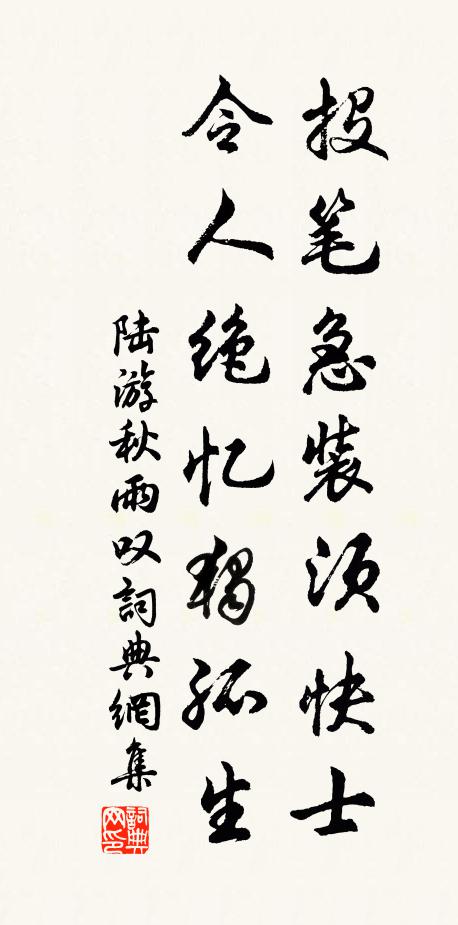 投笔急装须快士
令人绝忆獨孤生
陆游秋雨叹詞典網集
詞典
网印